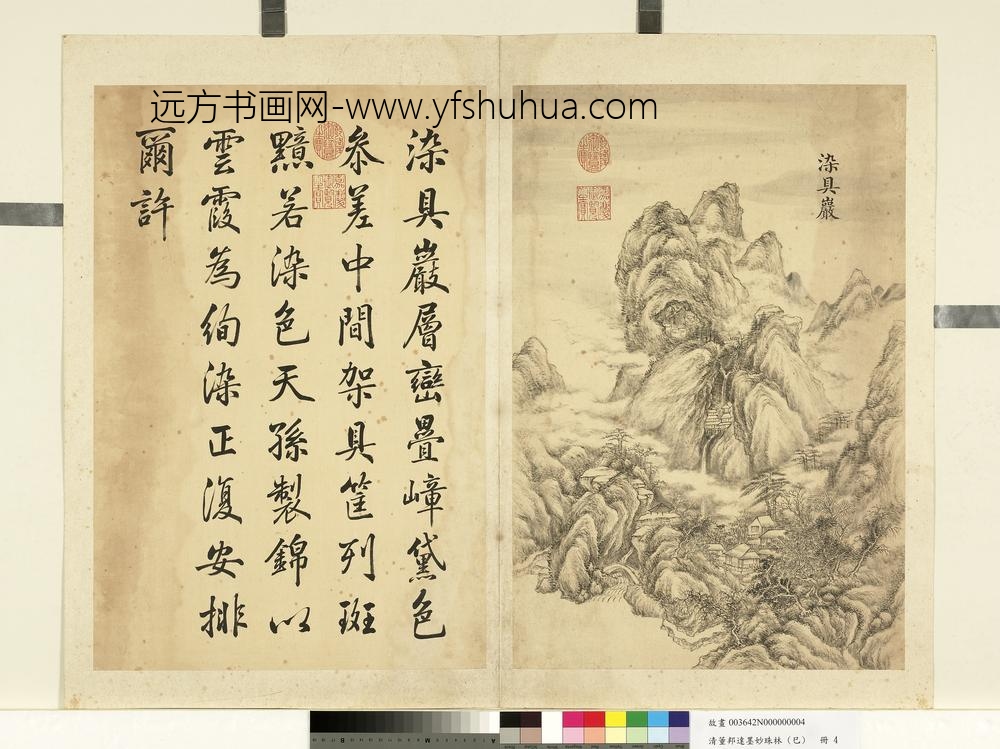 远方书画网-www.yfshuhua.com
染具巖
染具巖層巒疊嶂黛色
叅差中間架具筐列斑
黦若染色天孫製錦以
雲霞為絢染正復安排
爾許
故畫 003642N000000004
清董邦達墨妙珠林（巳） 冊 4